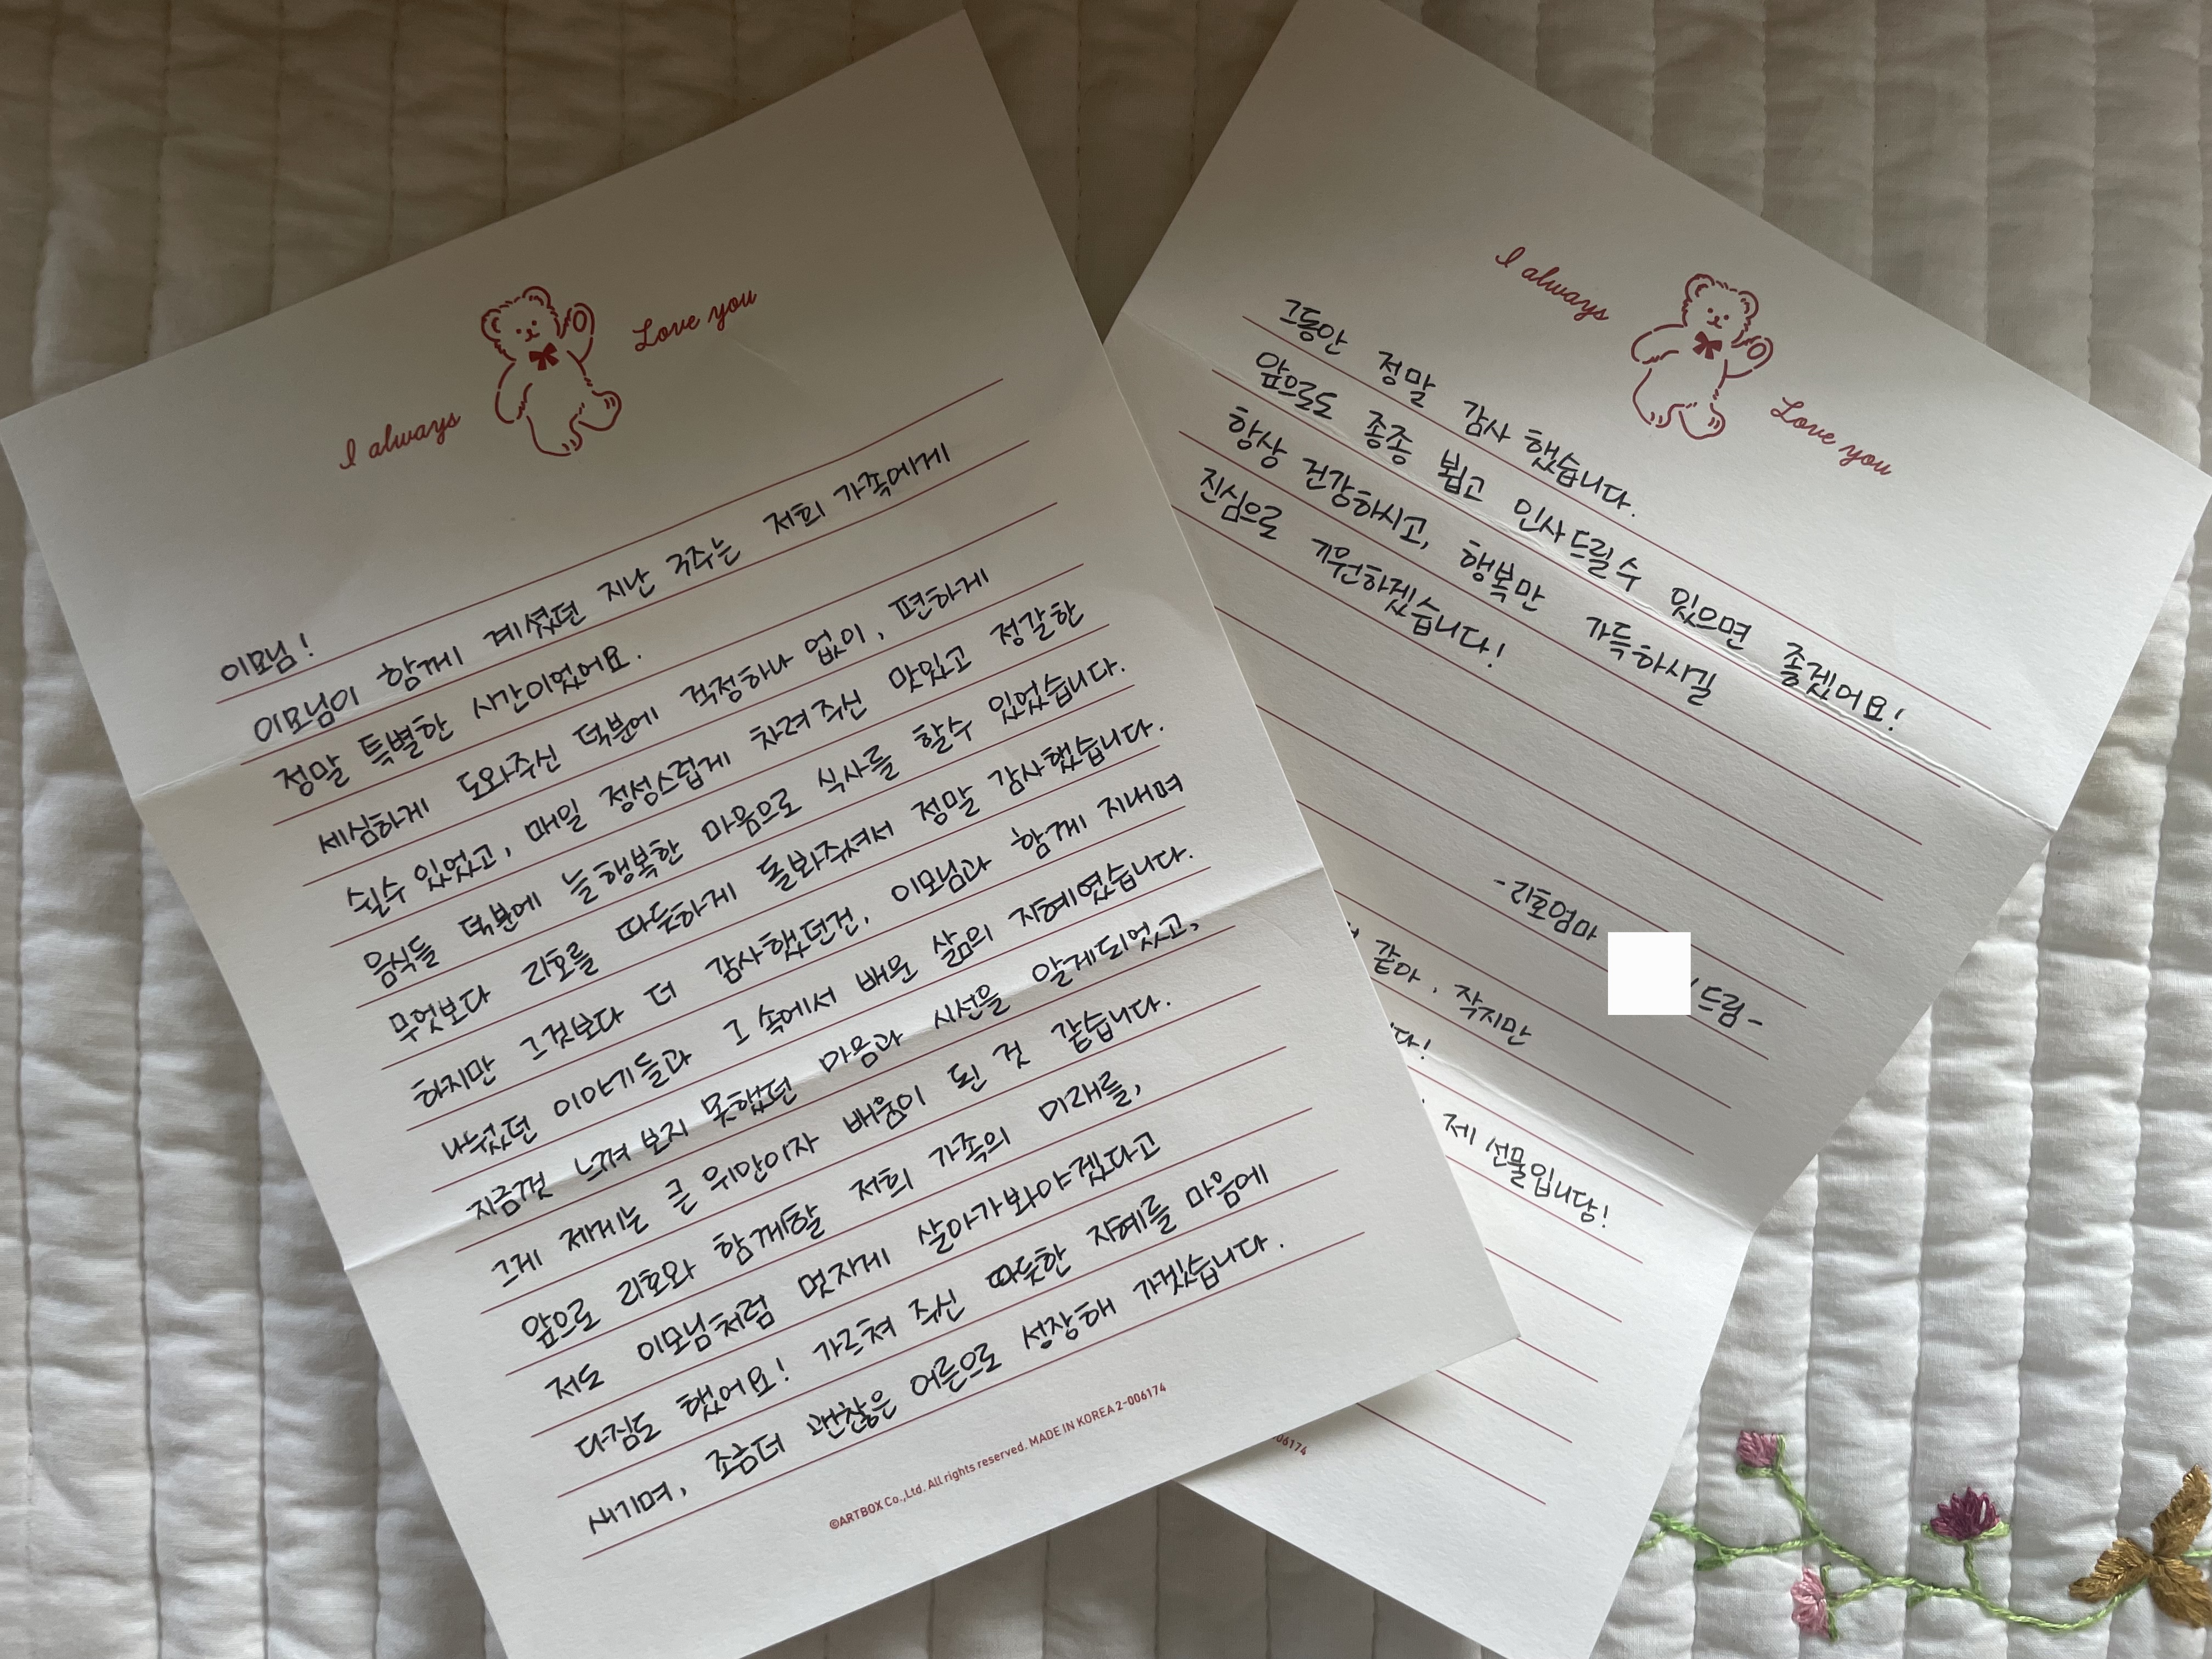 I always Love you
이모님!
이모님이 함께 계셨던 지난 3주는 저희 가족에게
정말 특별한 시간이었어요.
세심하게 도와주신 덕분에 걱정하나 없이, 편하게
쉴수 있었고, 매일 정성스럽게 차려주신 맛있고 정갈한
음식들 덕분에 늘 행복한 마음으로 식사를 할수 있었습니다.
무엇보다 리호를 따듯하게 돌봐주셔서 정말 감사했습니다.
하지만 그것보다 더 감사했던건, 이모님과 함께 지내며
나눴던 이야기들과 그 속에서 배운 삶의 지혜였습니다.
지금껏 느껴 보지 못했던 마음과 시선을 알게되었고,
그게 제게는 큰 위안이자 배움이 된 것 같습니다.
앞으로 리호와 함께할 저희 가족의 미래를,
저도 이모님처럼 멋지게 살아가봐야겠다고
다짐도 했어요! 가르쳐 주신 따듯한 지혜를 마음에
새기며, 조금더 괜찮은 어른으로 성장해 가겠습니다.
©ARTBOX Co.,Ltd. All rights reserved. MADE IN KOREA 2-006174
I always Love you
그동안 정말 감사 했습니다.
앞으로도 종종 뵙고 인사드릴수 있으면 좋겠어요!
항상 건강하시고, 행복만 가득하시길
진심으로 기원하겠습니다!
-리호엄마 드림-
같아, 작지만
다!
제 선물입니당!
06174